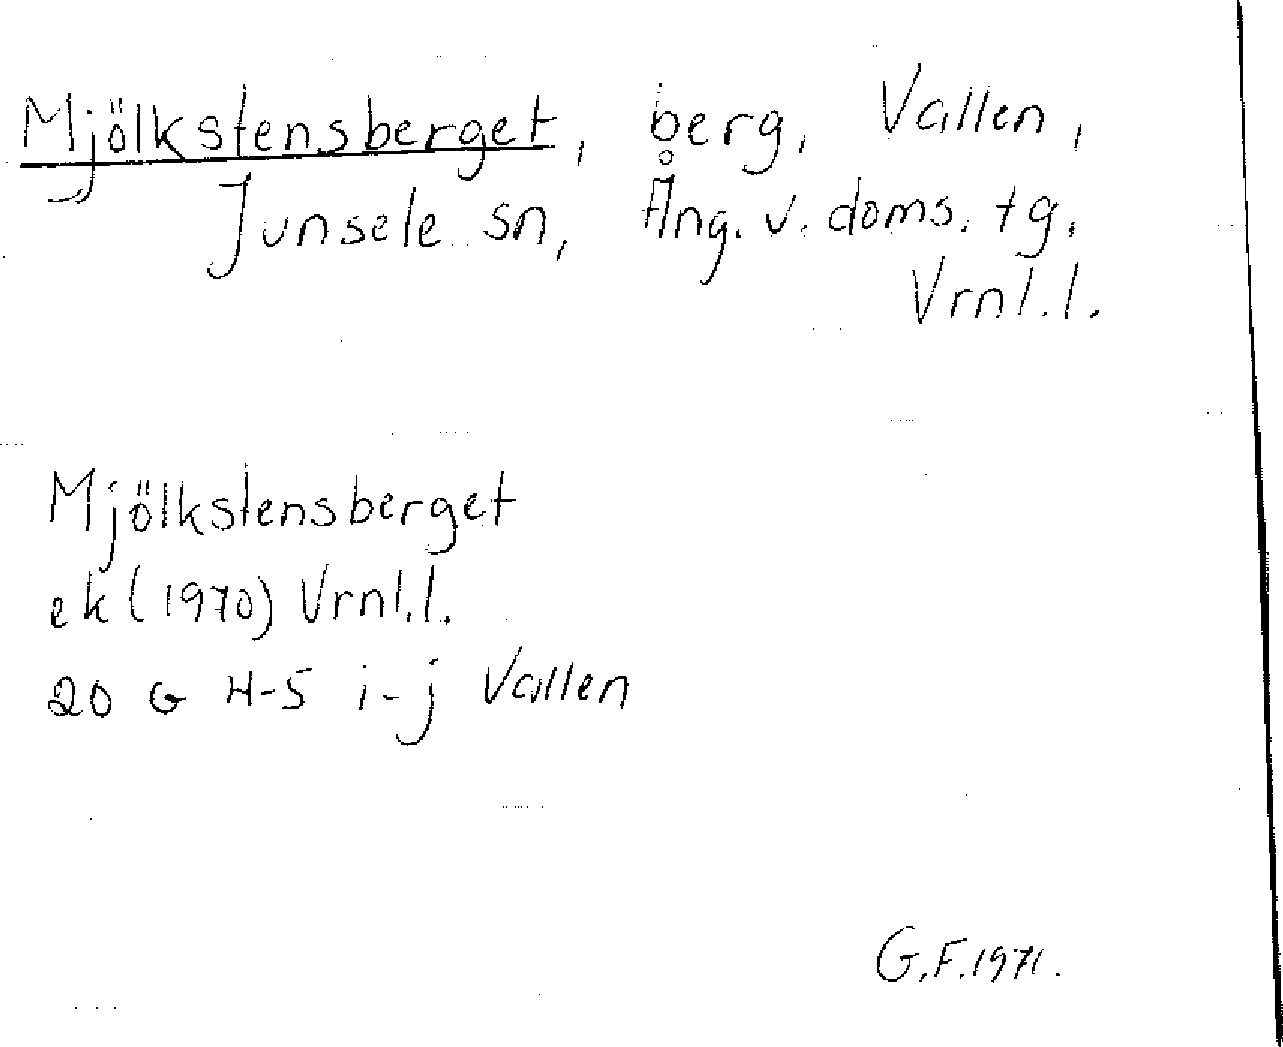 Mjölkstensberget, berg, Vallen,
Junsele sn, Ång. v. doms. tg,
Vrnl.l.
Mjölkstensberget
ek (1970) Vrnl.l.
20 G 4-5 i-j Vallen
G.F.1971.